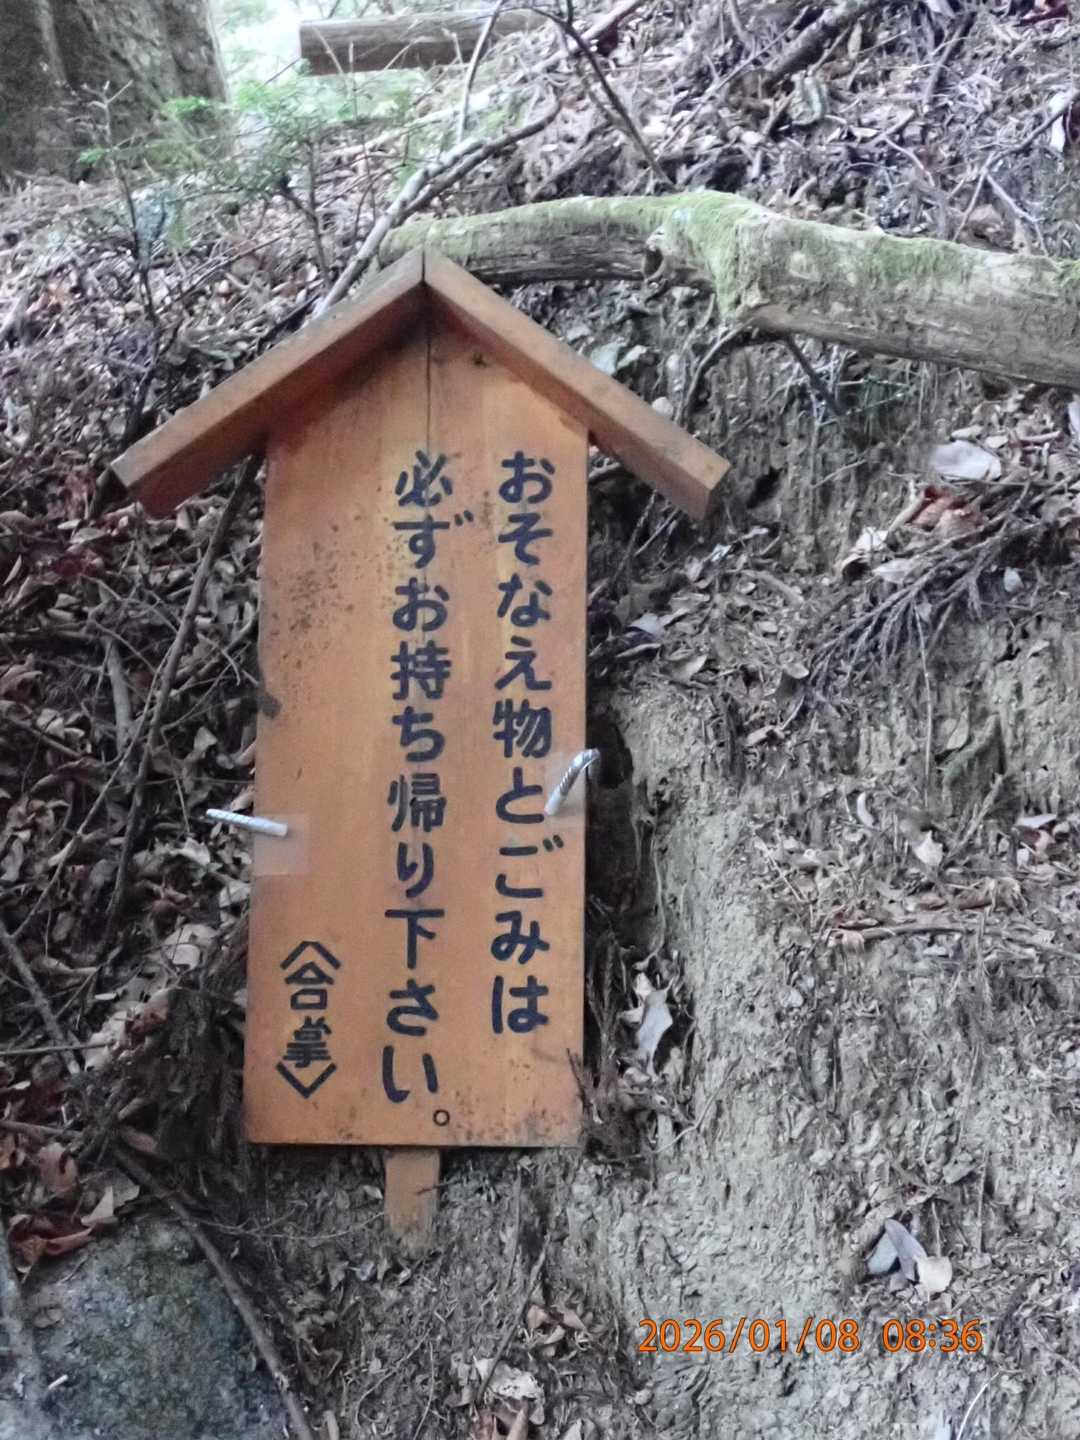 おそなえ物とごみは
必ずお持ち帰り下さい。
〈合掌〉
2026/01/08 08:36